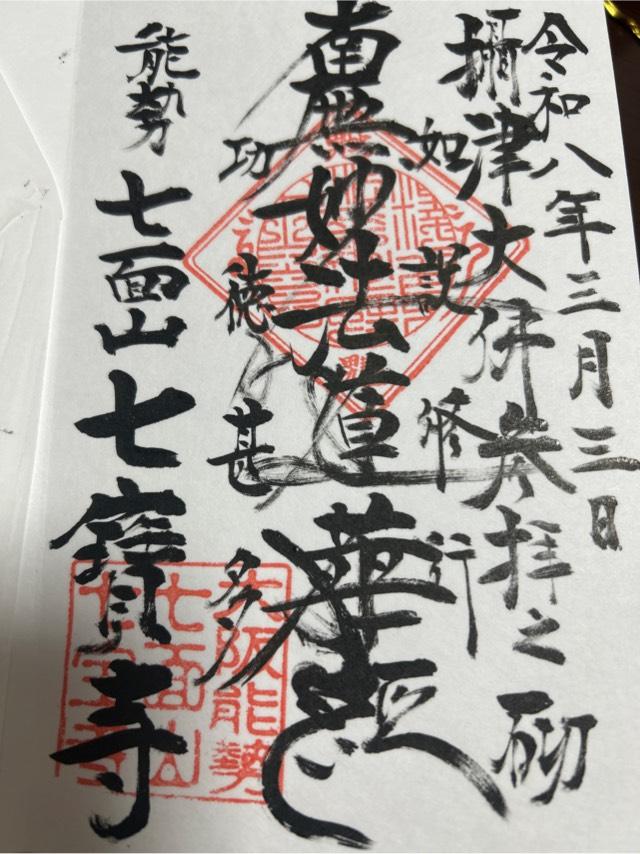 令和八年三月三日
攝津大伴参拝之砌
如説修行
南無妙法蓮華経
功徳甚多
能勢
七面山七寳寺
大阪能勢
七面山
七宝寺